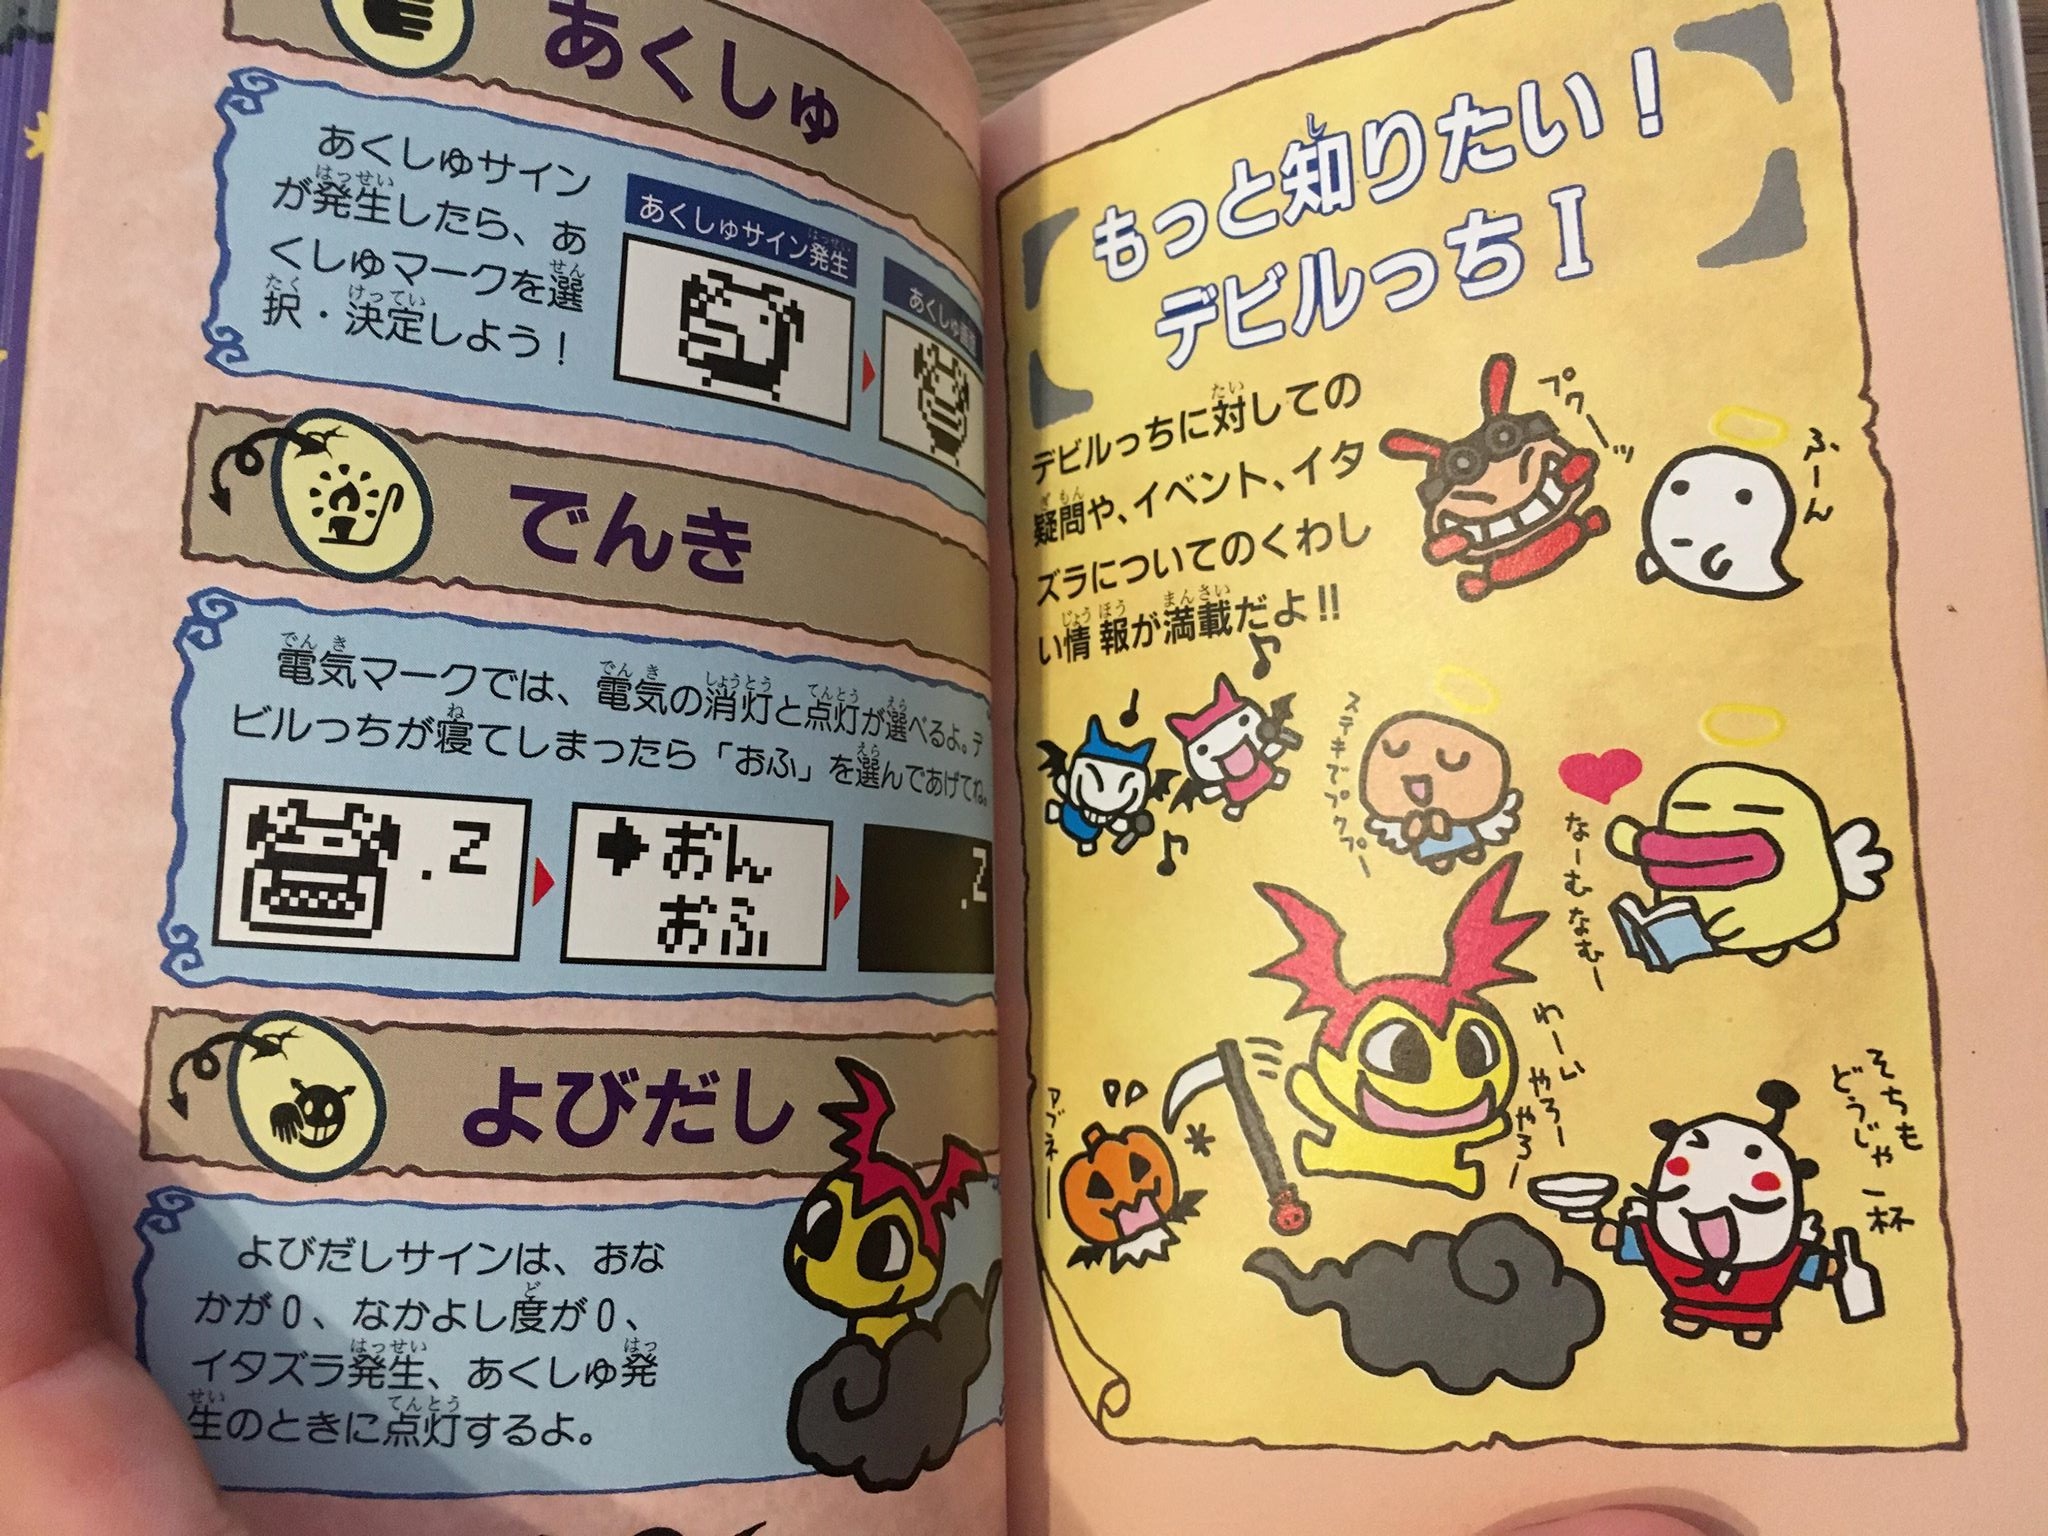 あくしゅ
あくしゅサイン
が発生したら、あ
くしゅマークを選
択・決定しよう！
あくしゅサイン発生
でんき
電気マークでは、電気の消灯と点灯が選べるよ。デ
ビルっちが寝てしまったら「おふ」を選んであげてね。
.Z
おん
おふ
.Z
よびだし
よびだしサインは、おな
かが0、なかよし度が0、
イタズラ発生、あくしゅ発
生のときに点灯するよ。
もっと知りたい！
デビルっちI
デビルっちに対しての
疑問や、イベント、イタ
ズラについてのくわし
い情報が満載だよ!!
プワーッ
ふーん
ステキでプクプー
なーむなむー
わーい
やろー
やろー
アブネー
そちも
どうじゃ
一杯